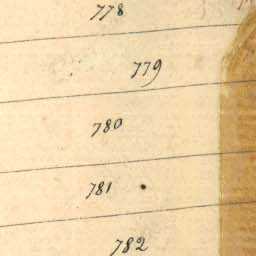 778
779
780
781
782